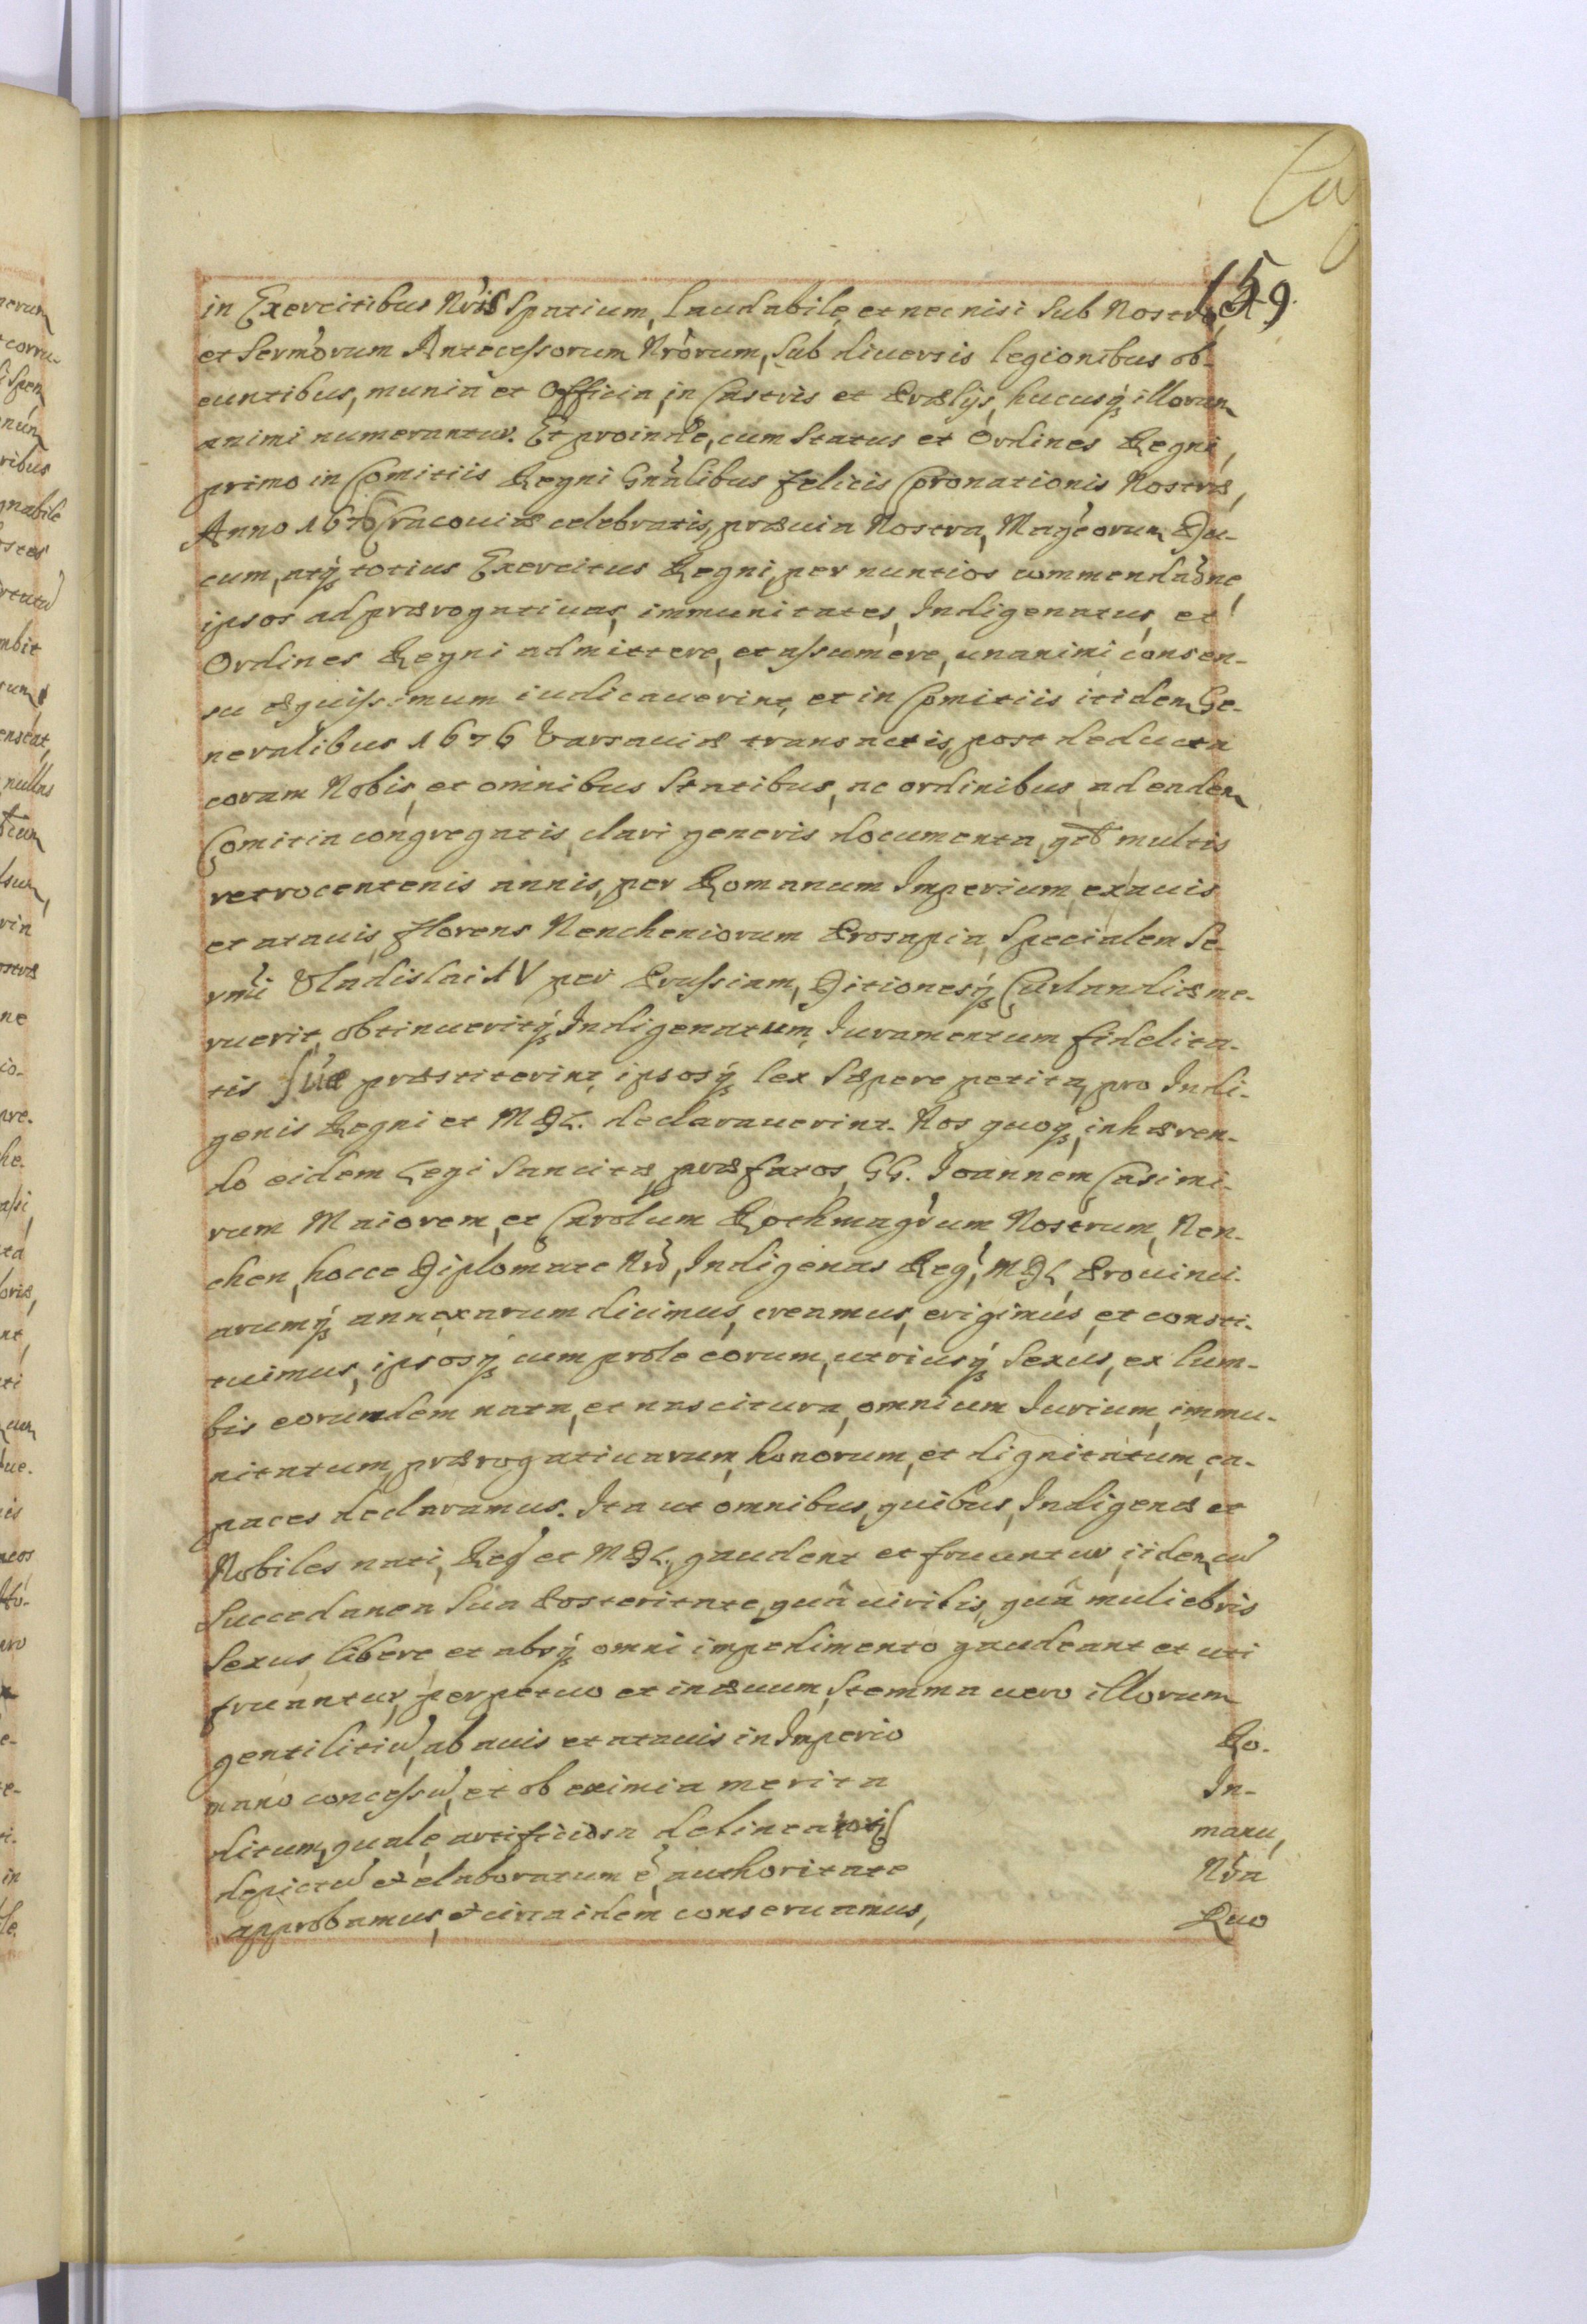 159.
in Exercitibus Nr̃is Spatium, laudabile, et nec nisi sub Nostro,
et Serm̃orum Antecessorum Nr̃orum, sub diuersis legionibus ob-
euntibus, munia et Officia, in Castris et Prælijs, hucusq́ꝫ illorum
animi numerantur. Et proinde, cum Status et Ordines Regni,
primo in Comitiis Regni Gñalibus felicis Coronationis Nostræ,
Anno 1676 Cracouiæ celebratis, præuia Nostra, Mag̃corum Du-
cum, atq́ꝫ totius Exercitus Regni, per nuntios commendãone,
ipsos ad prærogatiuas, immunitates, Indigenatus, et
Ordines Regni admittere, et assumere, unanimi consen-
su æquissimum iudicauerint, et in Comitiis itidem Ge-
neralibus 1676 Varsauiæ transactis, post deducta
coram Nobis, et omnibus Statibus, ac ordinibus, ad eadem
Comitia congregatis, clari generis documenta, qd̃ multis
retrocentenis annis, per Romanum Imperium, ex auis
et atauis, florens Nencheniorum Prosapia, Specialem Se-
rm̃i Vladislai IV per Prussiam, Ditionesq́ꝫ Curlandiæ me-
ruerit, obtinueritq́ꝫ Indigenatum, Iuramentum fidelita-
tis suæ præstiterint, ipsosq́ꝫ lex sæpere petita, pro Indi-
genis Regni et MDL. declarauerint. Nos quoq́ꝫ, inhæren-
do eidem Legi Sancitæ, præfatos, GG. Joannem Casimi-
rum Maiorem, et Carolum Rothmag̃rum Nostrum, Nen-
chen, hocce Diplomate Nr̃o, Indigenas Reg̃i, MDL Prouinci-
arumq́ꝫ annexarum dicimus, creamus, erigimus, et consti-
tuimus, ipsosq́ꝫ cum prole eorum, utriusq́ꝫ sexus, ex lum-
bis eorumdem nata, et nascitura, omnium Iurium, immu-
nitatum, prærogatiuarum, honorum, et dignitatum, ca-
paces declaramus. Ita ut omnibus, quibus, Indigenæ et
Nobiles nati, Reg̃i et MDL., gaudent et fruuntur, iidem cũ
Succedanea sua Posteritate, quã uirilis, quã muliebris
Sexus, libere et absq́ꝫ omni impedimento gaudeant et uti
fruantur, perpetuo et in æuum, Stemma uero illorum
gentilitiũ, ab auis et atauis in Imperio Ro-
mano concessũ, et ob eximia merita In-
ditum, quale, artificiosa delineantis manu,
depictũ et elaboratum ẽ, authoritate Nr̃a
approbamus, et circa idem conseruamus, Quo